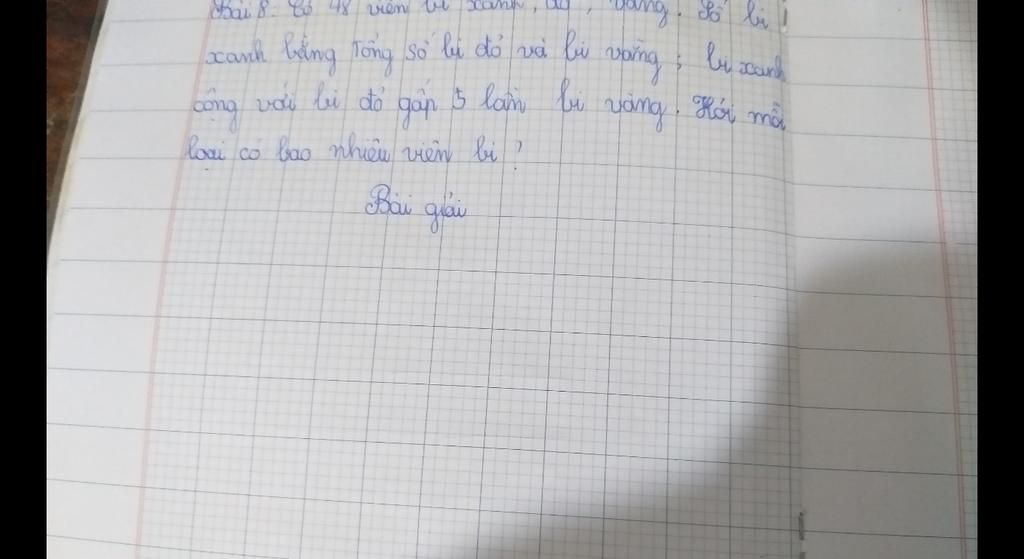 Bài 8. Có 48 viên bi xanh, đỏ, vàng. Số bi
xanh bằng tổng số bi đỏ và bi vàng; bi xanh
cộng với bi đỏ gấp 5 lần bi vàng. Hỏi mỗi
loại có bao nhiêu viên bi?
Bài giải